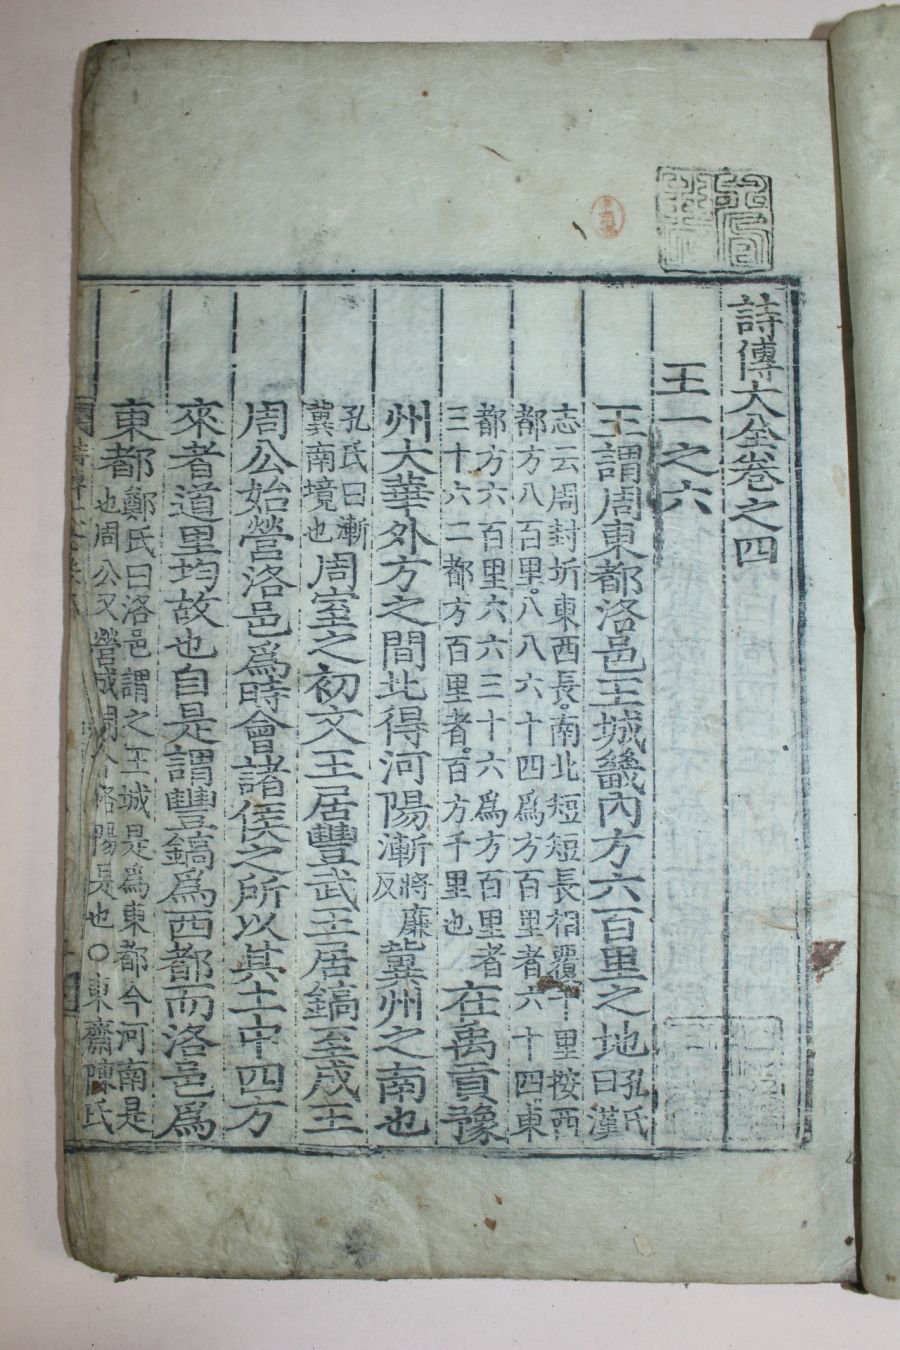 詩傳大全卷之四
王一之六
王謂周東都洛邑王城畿內方六百里之地孔氏曰漢
志云周封圻東西長。南北短短長相覆千里按西
都方八百里。八八六十四爲方百里者六十四。東
都方六百里六六三十六爲方百里者
三十六二都方百里者。百方千里也在禹貢豫
州大華外方之間北得河陽漸將廉反冀州之南也
孔氏曰漸冀南境也周室之初文王居豐武王居鎬至成王
周公始營洛邑爲時會諸侯之所以其土中四方
來者道里均故也自是謂豐鎬爲西都而洛邑爲
東都鄭氏曰洛邑謂之王城是爲東都今河南是
也周公又營成周今洛陽是也○東齋陳氏